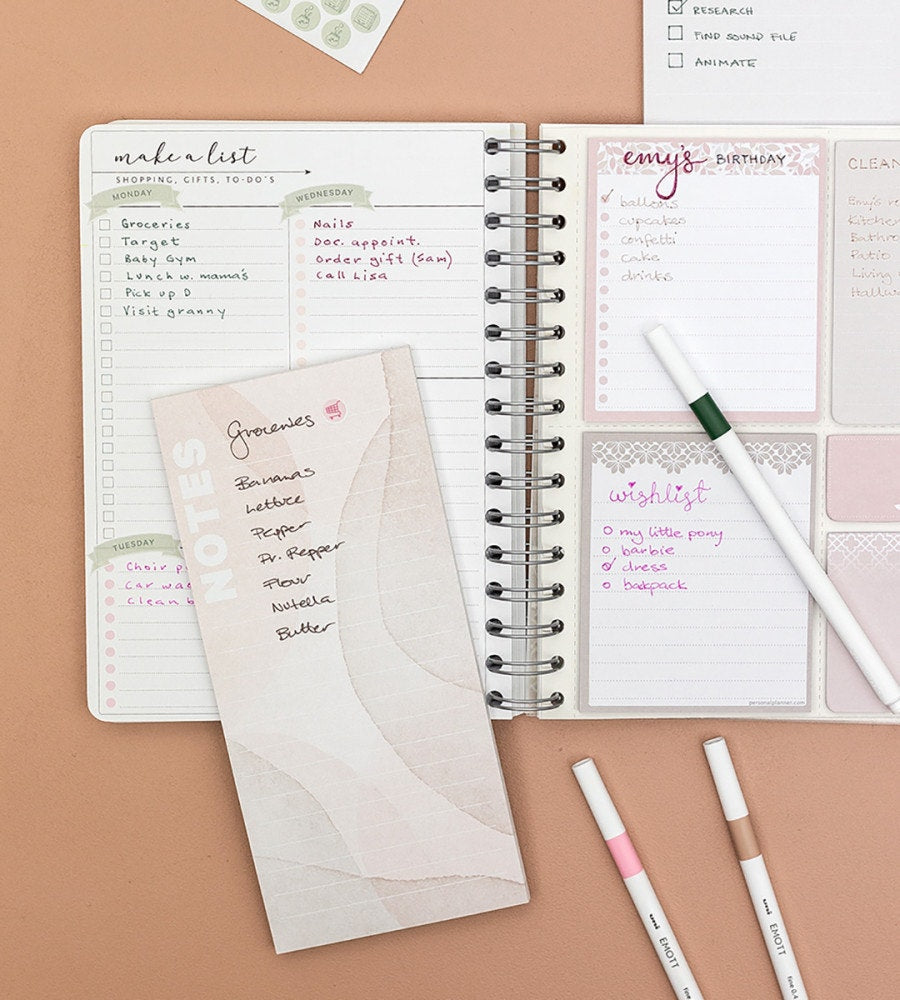 RESEARCH
FIND SOUND FILE
ANIMATE
make a list
SHOPPING, GIFTS, TO-DO'S
MONDAY
Groceries
Target
Baby Gym
Lunch w. mama's
Pick up D
Visit granny
WEDNESDAY
Nails
Doc. appoint.
Order gift (Sam)
Call Lisa
TUESDAY
Choir
Car
Clean
NOTES
Groceries
Bananas
Lettuce
Pepper
Dr. Pepper
Flour
Nutella
Butter
emy's BIRTHDAY
ballons
cupcakes
confetti
cake
drinks
wishlist
my little pony
barbie
dress
bakpack
personalplanner.com
CLEAN
Emy's
Kitchen
Patio
Living
uni EMOTT
fine
uni EMOTT
fine 0.